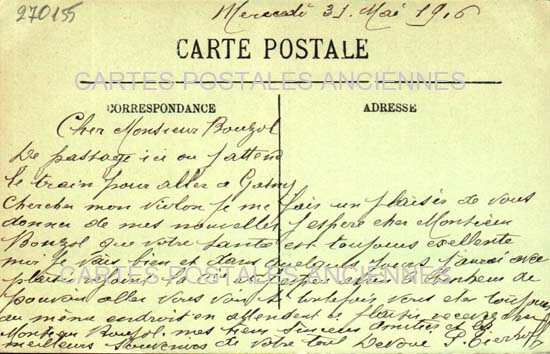 270155
Mercredi 31 Mai 1916
CARTE POSTALE
CARTES POSTALES ANCIENNES
CORRESPONDANCE
ADRESSE
Cher Monsieur Bouzol
De passage ici ou j'attend
le train pour aller a Gasny
Chercher mon violon je me fais un plaisir de vous
donner de mes nouvelles j'espere cher Monsieur
Bouzol que votre santé est toujours exellente
moi je vais bien et dans quelques jours j'aurai avec
plaisir le bonheur de
CARTES POSTALES ANCIENNES
pouvoir aller vous voir si toutefois vous etes toujours
au même endroit en attendant ce plaisir recevez cher
Monsieur Bouzol mes bien sincères amitiés et les
meilleurs souvenirs de votre tout Dévoué P.